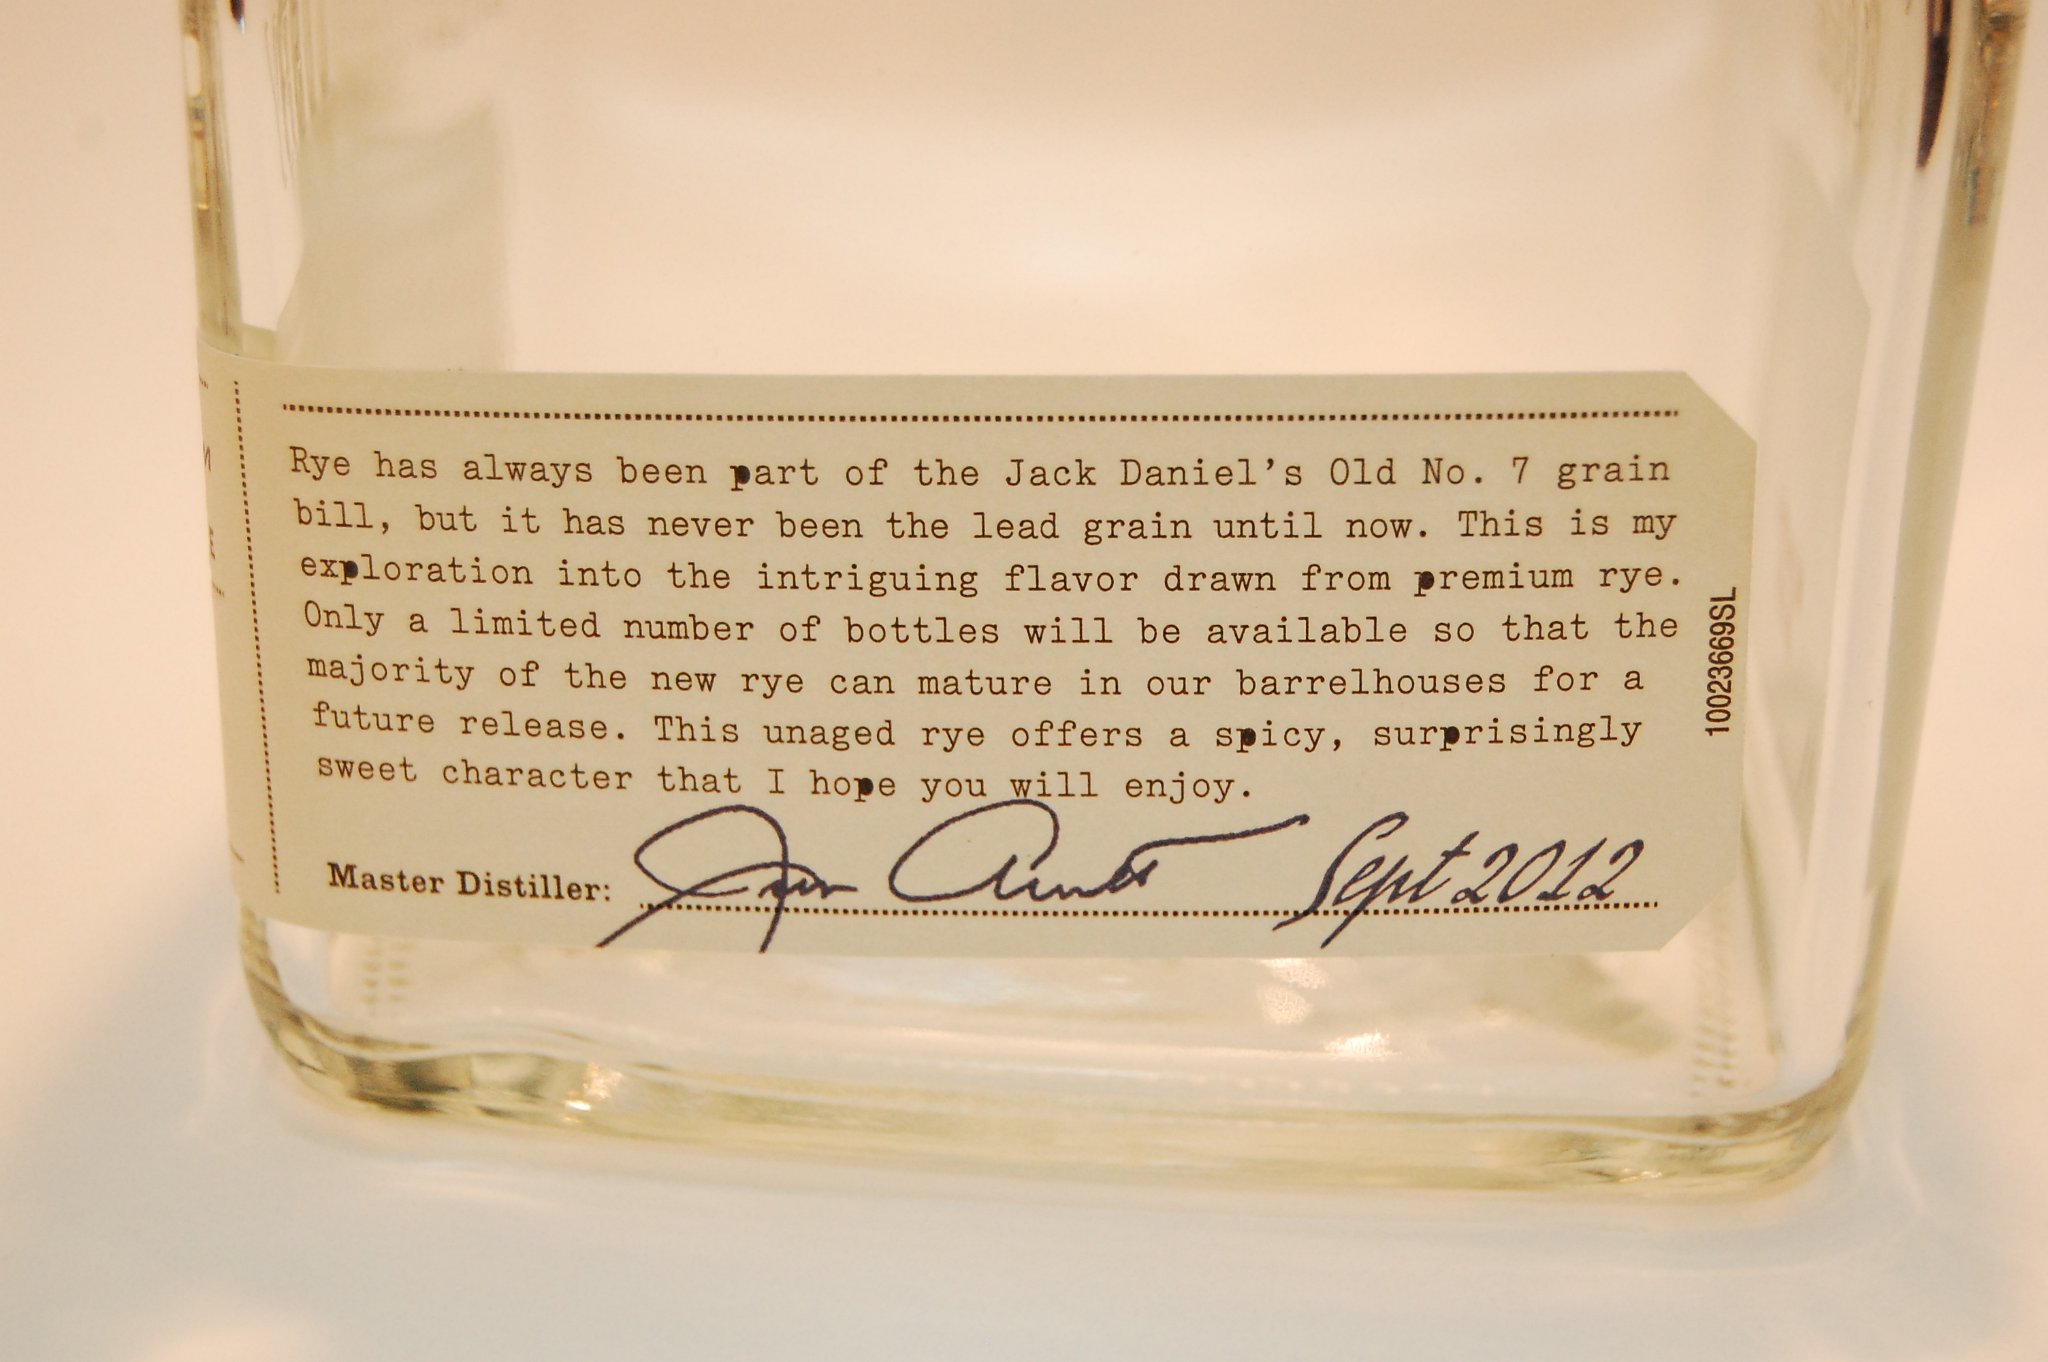 Rye has always been part of the Jack Daniel's Old No. 7 grain
bill, but it has never been the lead grain until now. This is my
exploration into the intriguing flavor drawn from premium rye.
Only a limited number of bottles will be available so that the
majority of the new rye can mature in our barrelhouses for a
future release. This unaged rye offers a spicy, surprisingly
sweet character that I hope you will enjoy.
Master Distiller: Sept 2012
10023669SL